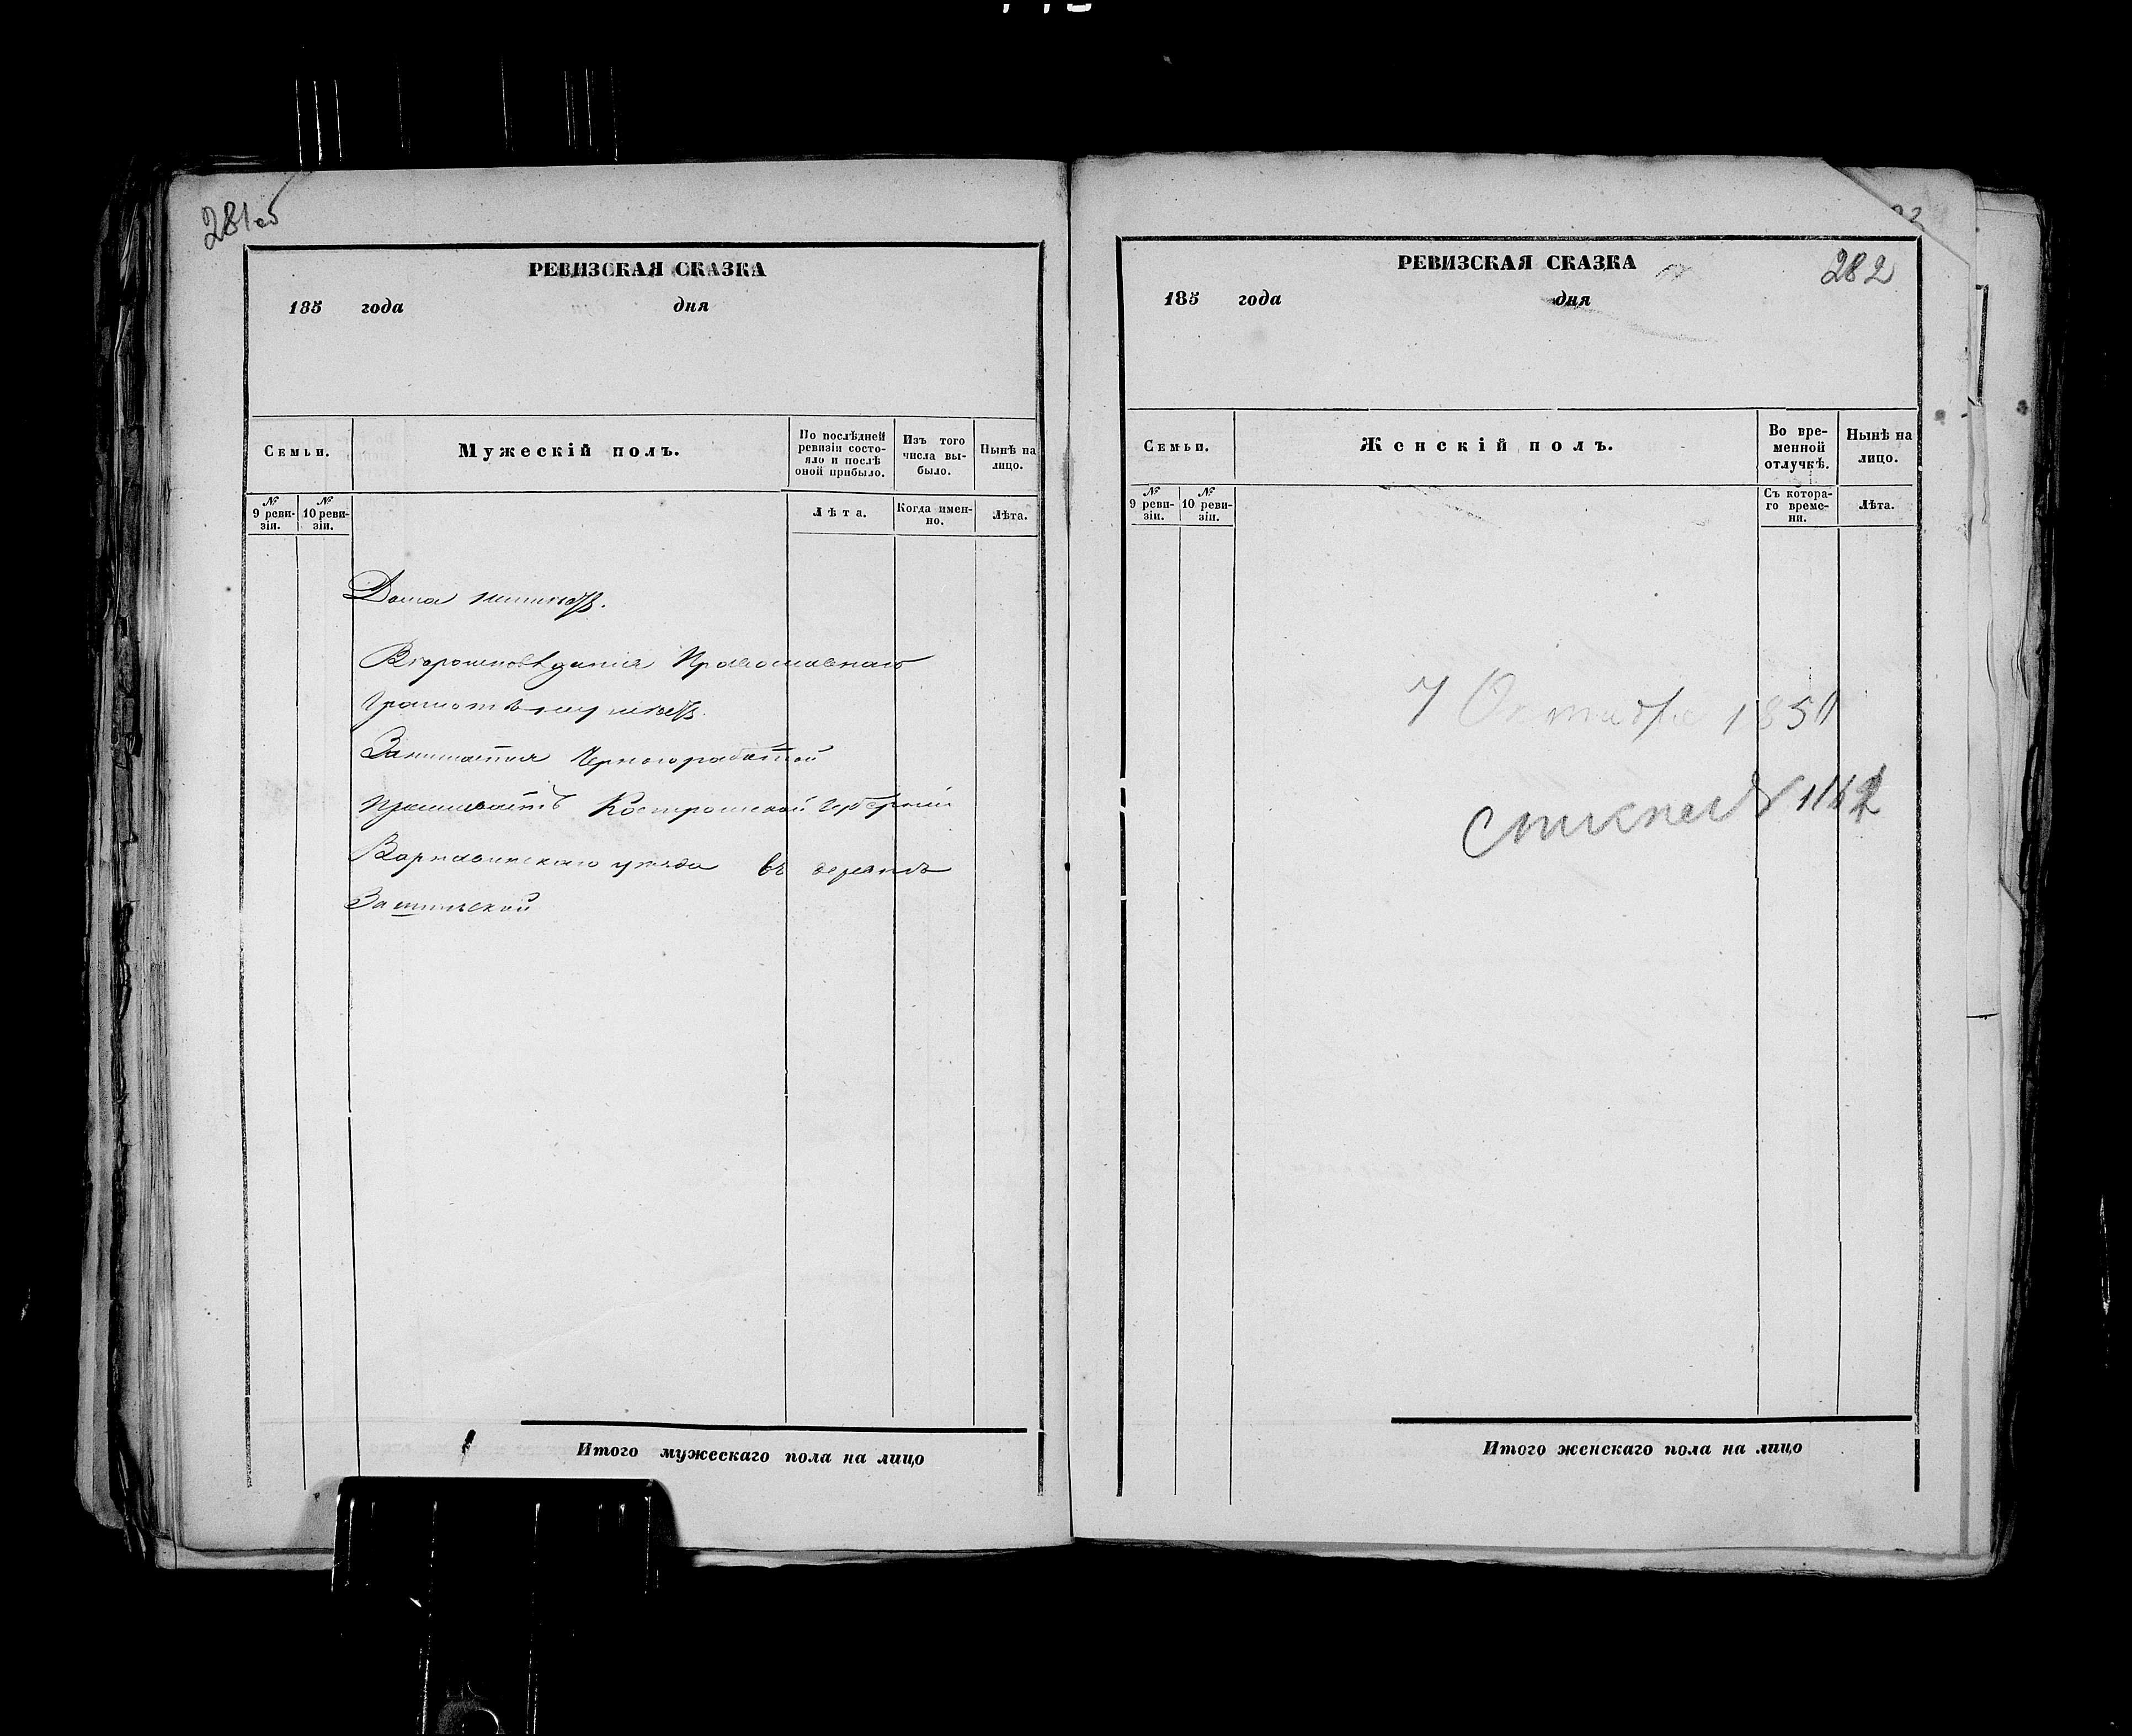 281об
РЕВИЗСКАЯ СКАЗКА
185 года дня
Семьи.
Мужескій полъ.
По послѣдней ревизіи состояло и послѣ оной прибыло.
Изъ того числа выбыло.
Нынѣ на лицо.
№ 9 ревизіи.
№ 10 ревизіи.
Лѣта.
Когда именно.
Лѣта.
Дома
Вѣроисповѣданія Православнаго
Грамотѣ
Занимается Чернорабатой
Проживаетъ Костромской Губерніи
Варнавинскаго уезда въ деревнѣ
Итого мужескаго пола на лицо
282
РЕВИЗСКАЯ СКАЗКА
185 года дня
Семьи.
Женскій полъ.
Во временной отлучкѣ.
Нынѣ на лицо.
№ 9 ревизіи.
№ 10 ревизіи.
Съ котораго времени.
Лѣта.
7 Октября 185
Итого женскаго пола на лицо